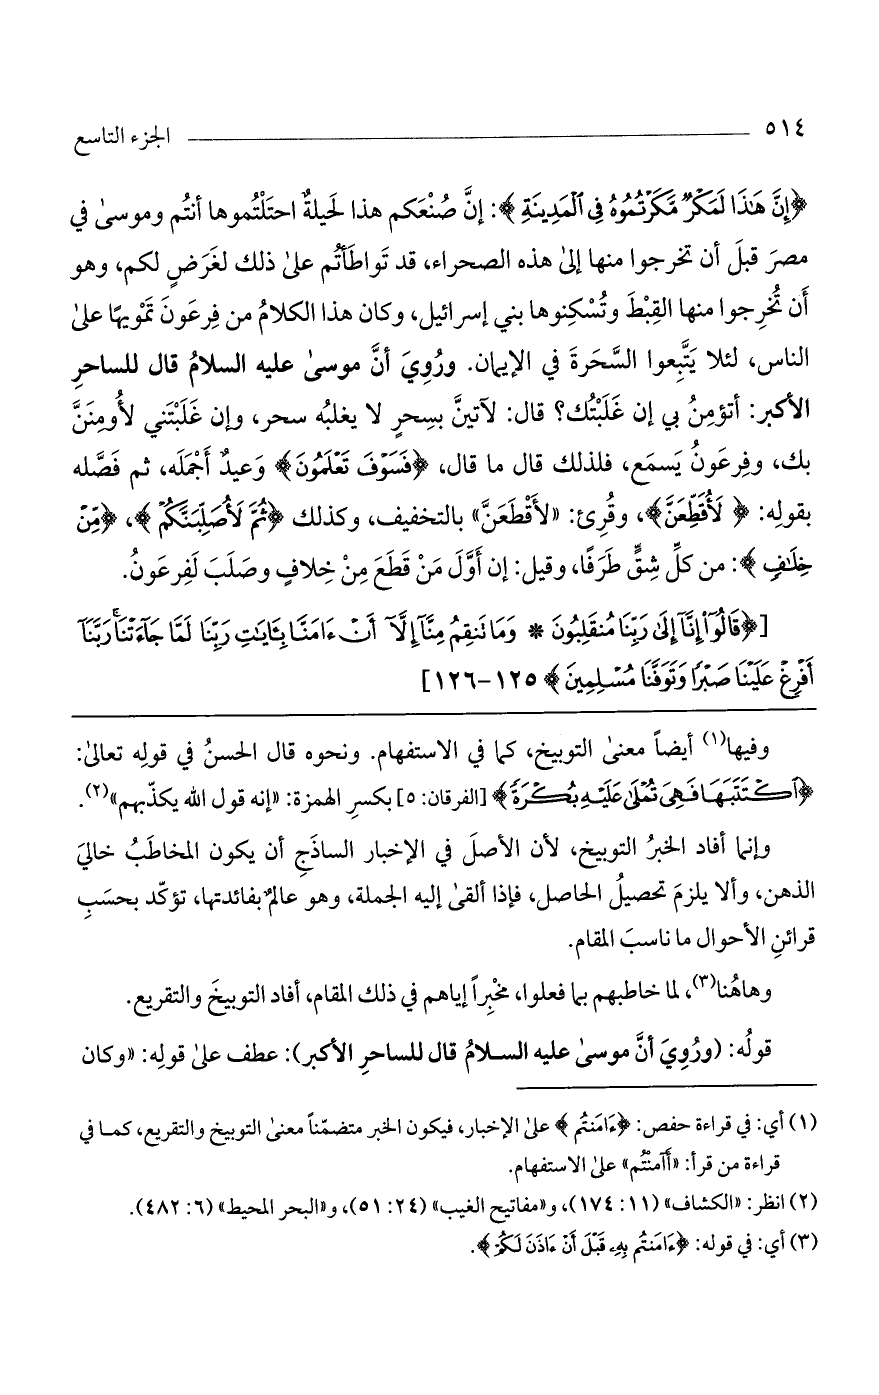 ٥١٤ الجزء التاسع
﴿إِنَّ هَٰذَا لَمَكْرٌ مَّكَرْتُمُوهُ فِي ٱلْمَدِينَةِ﴾: إنَّ صُنْعَكم هذا لَحيلةٌ احتَلْتُموها أنتُم وموسىٰ في
مصرَ قبلَ أن تخرجوا منها إلىٰ هذه الصحراء، قد تَواطَأتُم علىٰ ذلك لغَرَضٍ لكم، وهو
أَن تُخرِجوا منها القِبْطَ وتُسْكِنوها بني إسرائيل، وكان هذا الكلامُ من فِرعَونَ تَمْويهًا علىٰ
الناس، لئلا يَتَّبِعوا السَّحَرةَ في الإيمان. ورُوِيَ أنَّ موسىٰ عليه السلامُ قال للساحرِ
الأكبر: أتؤمِنُ بي إن غَلَبْتُك؟ قال: لآتينَّ بسِحرٍ لا يغلبُه سحر، وإن غَلَبْتَني لأُومِنَنَّ
بك، وفِرعَونُ يَسمَع، فلذلك قال ما قال، ﴿فَسَوْفَ تَعْلَمُونَ﴾ وَعيدٌ أجْمَلَه، ثم فَصَّله
بقولِه: ﴿لَأُقَطِّعَنَّ﴾، وقُرِئ: «لأَقْطَعَنَّ» بالتخفيف، وكذلك ﴿ثُمَّ لَأُصَلِّبَنَّكُمْ﴾، ﴿مِّنْ
خِلَٰفٍ﴾: من كلِّ شِقٍّ طَرَفًا، وقيل: إن أوَّلَ مَنْ قَطَعَ مِنْ خِلافٍ وصَلَبَ لَفِرعَونُ.
[﴿قَالُوٓا۟ إِنَّآ إِلَىٰ رَبِّنَا مُنقَلِبُونَ * وَمَا نَنقِمُ مِنَّآ إِلَّآ أَنْ ءَامَنَّا بِـَٔايَٰتِ رَبِّنَا لَمَّا جَآءَتْنَا ۚ رَبَّنَآ
أَفْرِغْ عَلَيْنَا صَبْرًا وَتَوَفَّنَا مُسْلِمِينَ﴾ ١٢٥-١٢٦]
وفيها(١) أيضاً معنىٰ التوبيخ، كما في الاستفهام. ونحوه قال الحسنُ في قولِه تعالىٰ:
﴿ٱكْتَتَبَهَا فَهِىَ تُمْلَىٰ عَلَيْهِ بُكْرَةً﴾ [الفرقان: ٥] بكسرِ الهمزة: «إنه قول الله يكذّبهم»(٢).
وإنما أفاد الخبرُ التوبيخ، لأن الأصلَ في الإخبار الساذَجِ أن يكون المخاطَبُ خاليَ
الذهن، وألا يلزمَ تحصيلُ الحاصل، فإذا ألقىٰ إليه الجملة، وهو عالمٌ بفائدتها، تؤكّد بحسَبِ
قرائنِ الأحوال ما ناسبَ المقام.
وهاهُنا(٣)، لما خاطبهم بما فعلوا، مخْبِراً إياهم في ذلك المقام، أفاد التوبيخَ والتقريع.
قولُه: (ورُوِيَ أنَّ موسىٰ عليه السلامُ قال للساحرِ الأكبر): عطف علىٰ قولِه: «وكان
(١) أي: في قراءة حفص: ﴿ءَامَنتُم﴾ علىٰ الإخبار، فيكون الخبر متضمّناً معنىٰ التوبيخ والتقريع، كما في
قراءة من قرأ: «أآمنْتُم» علىٰ الاستفهام.
(٢) انظر: «الكشاف» (١١: ١٧٤)، و«مفاتيح الغيب» (٢٤: ٥١)، و«البحر المحيط» (٦: ٤٨٢).
(٣) أي: في قوله: ﴿ءَامَنتُم بِهِۦ قَبْلَ أَنْ ءَاذَنَ لَكُمْ﴾.